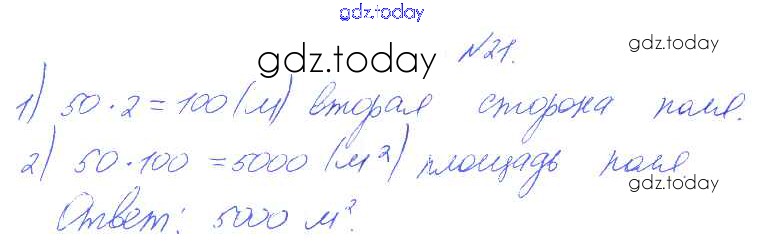 gdz.today
№21.
gdz.today
gdz.today
1) 50·2=100(м) вторая сторона поля.
2) 50·100=5000 (м²) площадь поля
gdz.today
Ответ: 5000 м².